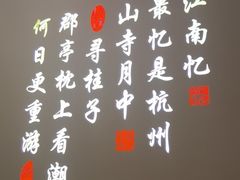 江南忆
最忆是杭州
山寺月中
寻桂子
郡亭枕上看潮
何日更重游